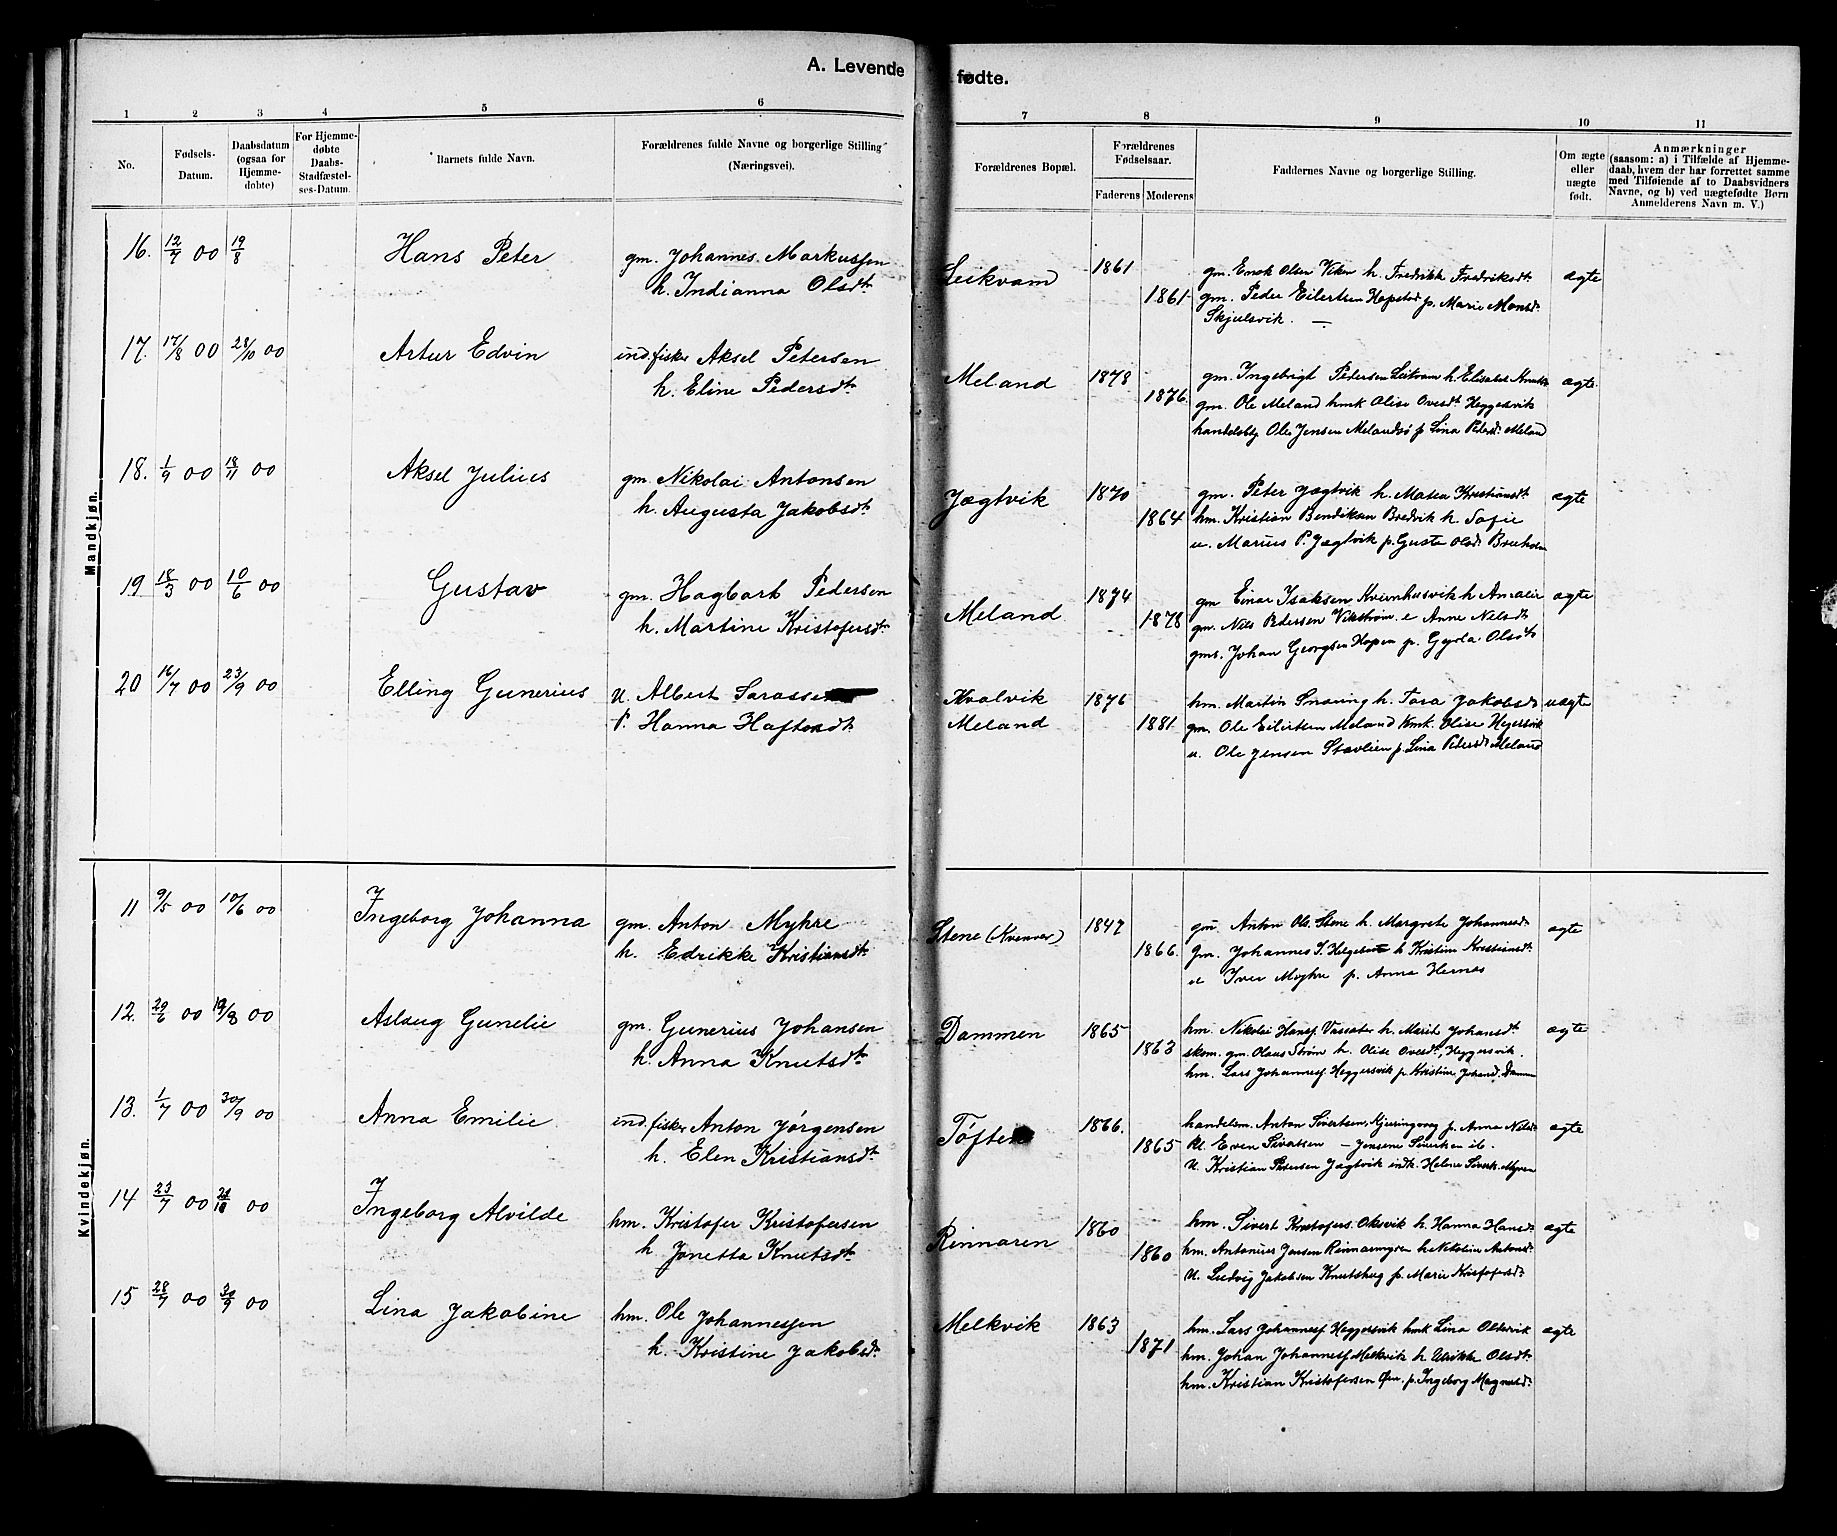 A. Levende fødte.
1 2 3 4 5 6 7 8 9 10 11
No.
Fødsels-Datum.
Daabsdatum (ogsaa for Hjemmedøbte)
For Hjemmedøbte Daabs-Stadfæstelses-Datum.
Barnets fulde Navn.
Forældrenes fulde Navne og borgerlige Stilling (Næringsvei).
Forældrenes Bopæl.
Forældrenes Fødselsaar.
Faderens Moderens
Faddernes Navne og borgerlige Stilling.
Om ægte eller uægte født.
Anmærkninger
(saasom: a) i Tilfælde af Hjemmedaab, hvem der har forrettet samme med Tilføiende af to Daabsvidners Navne, og b) ved uægtefødte Børn Anmelderens Navn m. V.)
Mandkjøn.
16. 12/7 00 19/8 Hans Peter gm. Johannes Markussen Leikvam 1861 gm. Enok Olsen Viken h. Fredrikk Fredriksdt ægte
h. Indianna Olsdt 1861 gm. Peder Eilertsen Hopstad p. Marie Monsd.
Skjulsvik. —
17. 17/8 00 28/10 00 Artur Edvin ind. fisker Aksel Petersen Meland 1878 gm. Ingebrigt Pedersen Leikvam h. Elisabet ægte
h. Eline Pedersdt 1876. gm. Ole Meland kmk Olise Ovesdt Heggesvik
handelsbtj Ole Jensen Melandsø p Lina Pedersd. Meland
18. 1/9 00 18/11 00 Aksel Julius gm. Nikolai Antonsen Jægtvik 1870 gm. Peter Jægtvik h. Matea Kristiansdt ægte
h. Augusta Jakobsdt 1864 hm. Kristian Bendiksen Bredvik h. Sofie
u. Marius P. Jægtvik p. Guste Olsd.
19 18/3 00 10/6 00 Gustav gm. Hagbart Pedersen Meland 1874 gm Einar Isaksen Kvernhusvik h Amalie ægte
h. Martine Kristofersdt. 1878 gm. Nils Pedersen Vikstrøm e Anne Nelsdt
gms. Johan Georgsen Hopen p. Gyda Olsdt
20 16/7 00 23/9 00 Elling Gunerius u. Albert Kvalvik 1876 hm. Martin Snaring h. Tora Jakobsd uægte
P. Hanna Haftordt. Meland 1881 gm. Ole Eilertsen Meland kmk. Olise Hegersvik
u. Ole Jensen Stavlien p. Lina Pedersdt Meland
Kvindekjøn.
11 9/5 00 10/6 00 Ingeborg Johanna gm. Anton Myhre Stene (Kvenvær) 1847 gm. Anton Ols. Stene h. Margrete Johannesd ægte
h. Edrikke Kristiansdt 1866. gm. Johannes S. h Kristine Kristiansdt.
e Iver Myhre p. Anna Hernes
12. 29/6 00 19/8 00 Aslaug Gunelie gm. Gunerius Johansen Dammen 1865 hm. Nikolai Hansf Vassæter h. Marit Johansdt ægte
h. Anna Knutsdt 1863 skom. gm. Olaus Strøm h. Olise Ovesdt, Heggersvik.
hm. Lars Johannesf Heggersvik p Kristine Johand. Dammen
13. 1/7 00 30/9 00 Anna Emilie ind. fisker Anton Jørgensen Tøften 1866. handelsm. Anton Sivertsen, p. Anna Nelsd ægte
h. Elen Kristiansdt. 1865 kl. Even Sivertsen — Jensene Sivertsen ib.
u. Kristian Petersen Jægtvik indk. Helene Siverts. Myren
14 23/7 00 00 Ingeborg Alvilde hm. Kristofer Kristofersen Rinnaren 1860 hm. Sivert Kristofers. Oksvik h. Hanna Hansd ægte
h. Jonetta Knutsdt. 1860 hm. Antonius Jensen Rinnarmyren h. Nekoline Antonsd.
u. Ludvig Jakobsen Knutshug p. Marie Kristofersdt.
15 28/7 00 30/9 00 Lina Jakobine hm. Ole Johannessen Melkvik 1863 hm. Lars Johannesf Heggersvik kmk Lina ægte
h. Kristine Jakobsd. 1871 hm. Johan Johannesf Melkvik h Ulrikke Olsdt.
hm. Kristian Kristofersen p. Ingeborg Magnusd.